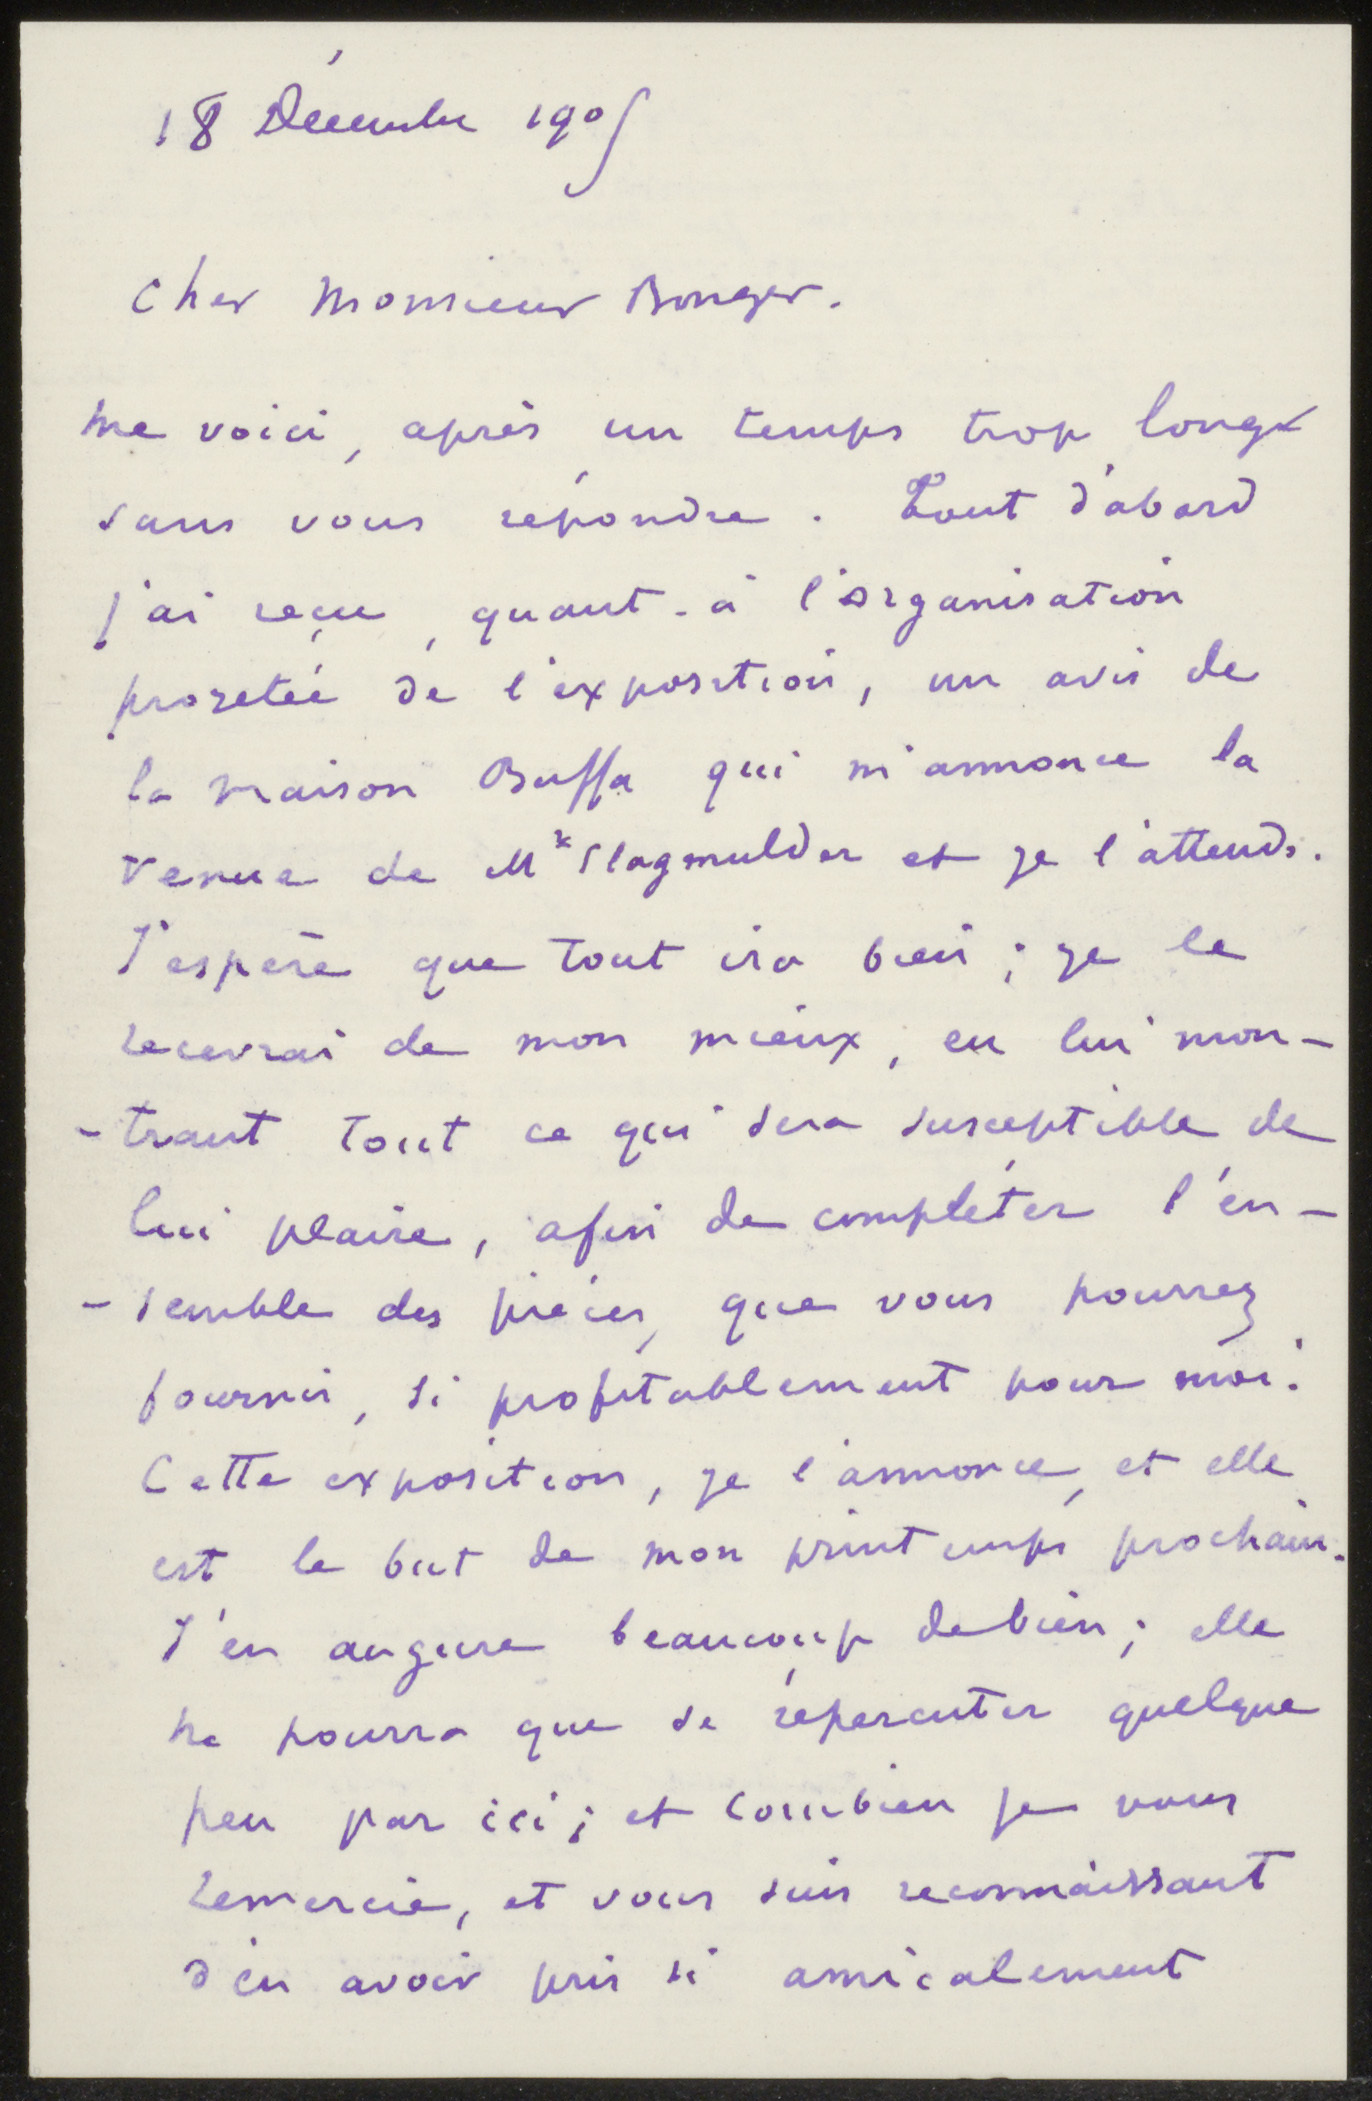 18 Décembre 1905
Cher Monsieur Bonger.
me voici, après un temps trop long
sans vous répondre. Tout d'abord
j'ai reçu, quant-à l'organisation
projetée de l'exposition, un avis de
la maison Buffa qui m'annonce la
venue de Mr Slagmulder et je l'attends.
J'espère que tout ira bien ; je le
recevrai de mon mieux, en lui mon-
-trant tout ce qui sera susceptible de
lui plaire, afin de compléter l'en-
-semble des pièces, que vous pourrez
fournir, si profitablement pour moi.
Cette exposition, je l'annonce, et elle
est le but de mon printemps prochain.
J'en augure beaucoup de bien ; elle
ne pourra que se réperCuter quelque
peu par ici ; et combien je vous
remercie, et vous suis reconnaissant
d'en avoir pris si amicalement